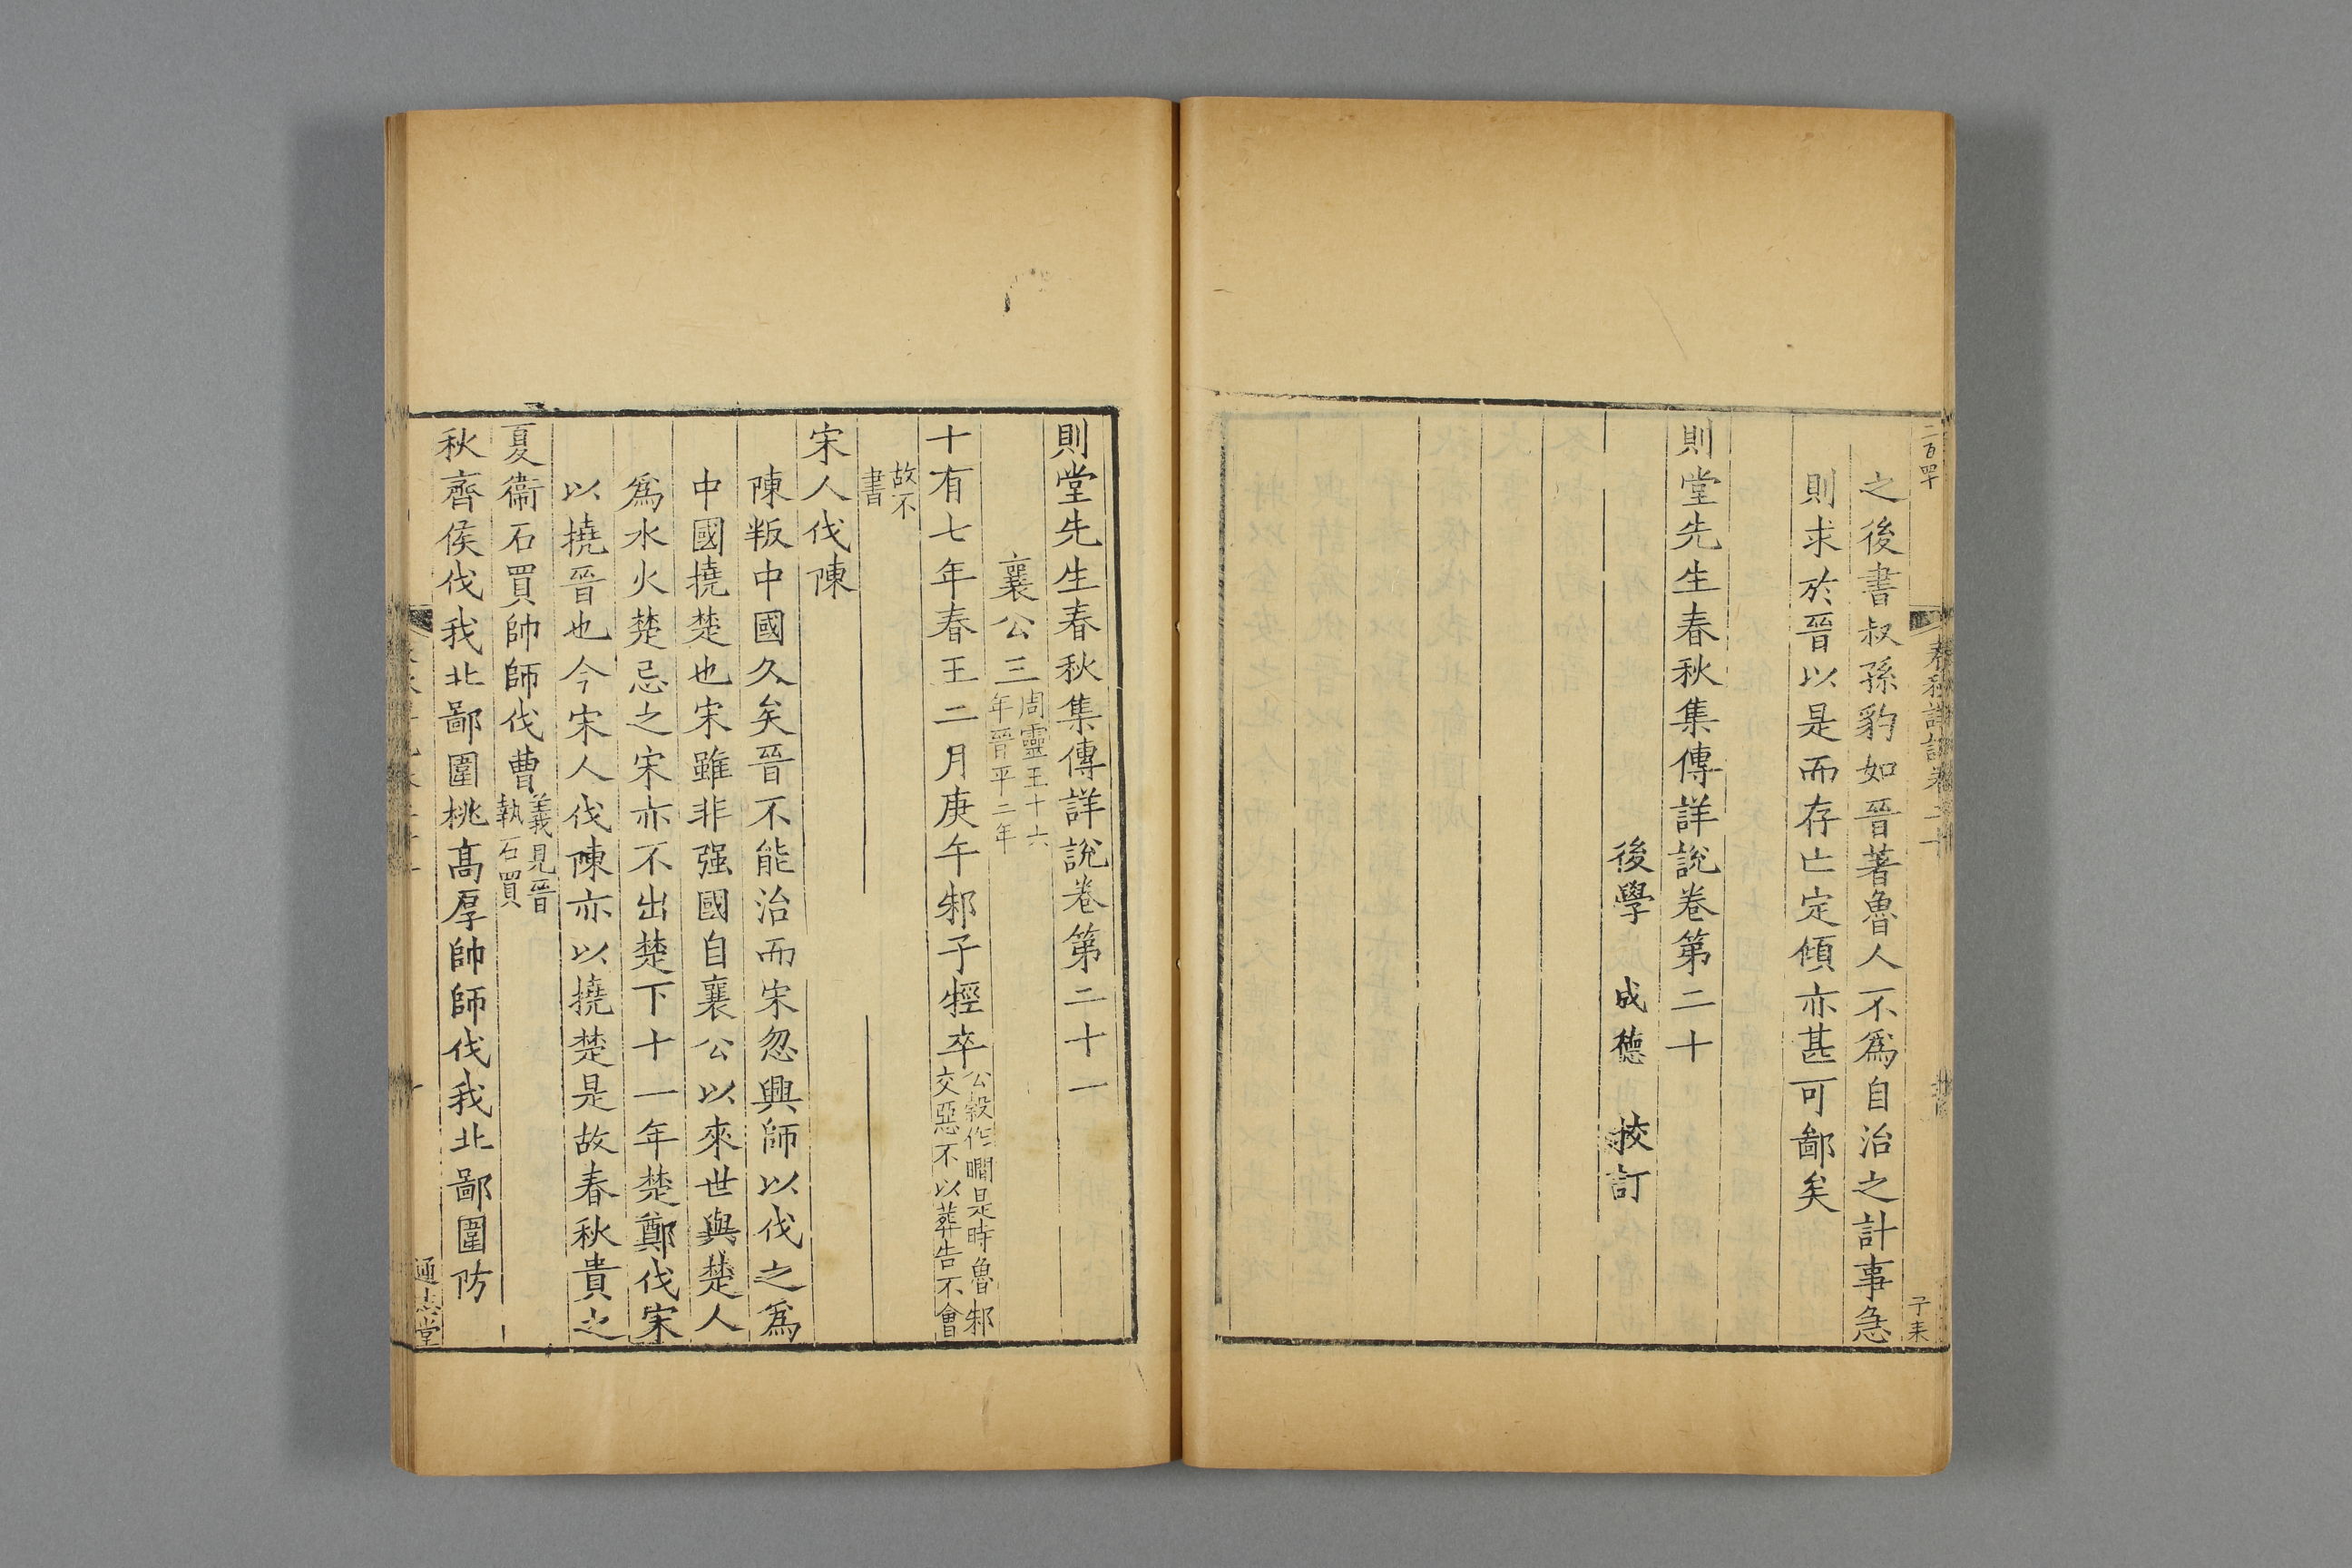 二百四十
之後書叔孫豹如晉著魯人不爲自治之計事急
則求於晉以是而存亡定傾亦甚可鄙矣
則堂先生春秋集傳詳說卷第二十
後學 成德 挍訂
則堂先生春秋集傳詳說卷第二十一
襄公三
周靈王十六
年晉平二年
十有七年春王二月庚午邾子牼卒
公穀作瞷是時魯邾
交惡不以葬告不會
故不
書
宋人伐陳
陳叛中國久矣晉不能治而宋忽興師以伐之爲
中國撓楚也宋雖非强國自襄公以來世與楚人
爲水火楚忌之宋亦不出楚下十一年楚鄭伐宋
以撓晉也今宋人伐陳亦以撓楚是故春秋貴之
夏衞石買帥師伐曹
義見晉
執石買
秋齊侯伐我北鄙圍桃高厚帥師伐我北鄙圍防
通志堂